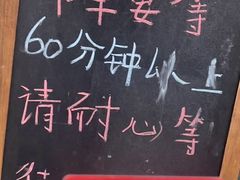 要等
60分钟以上
请耐心等